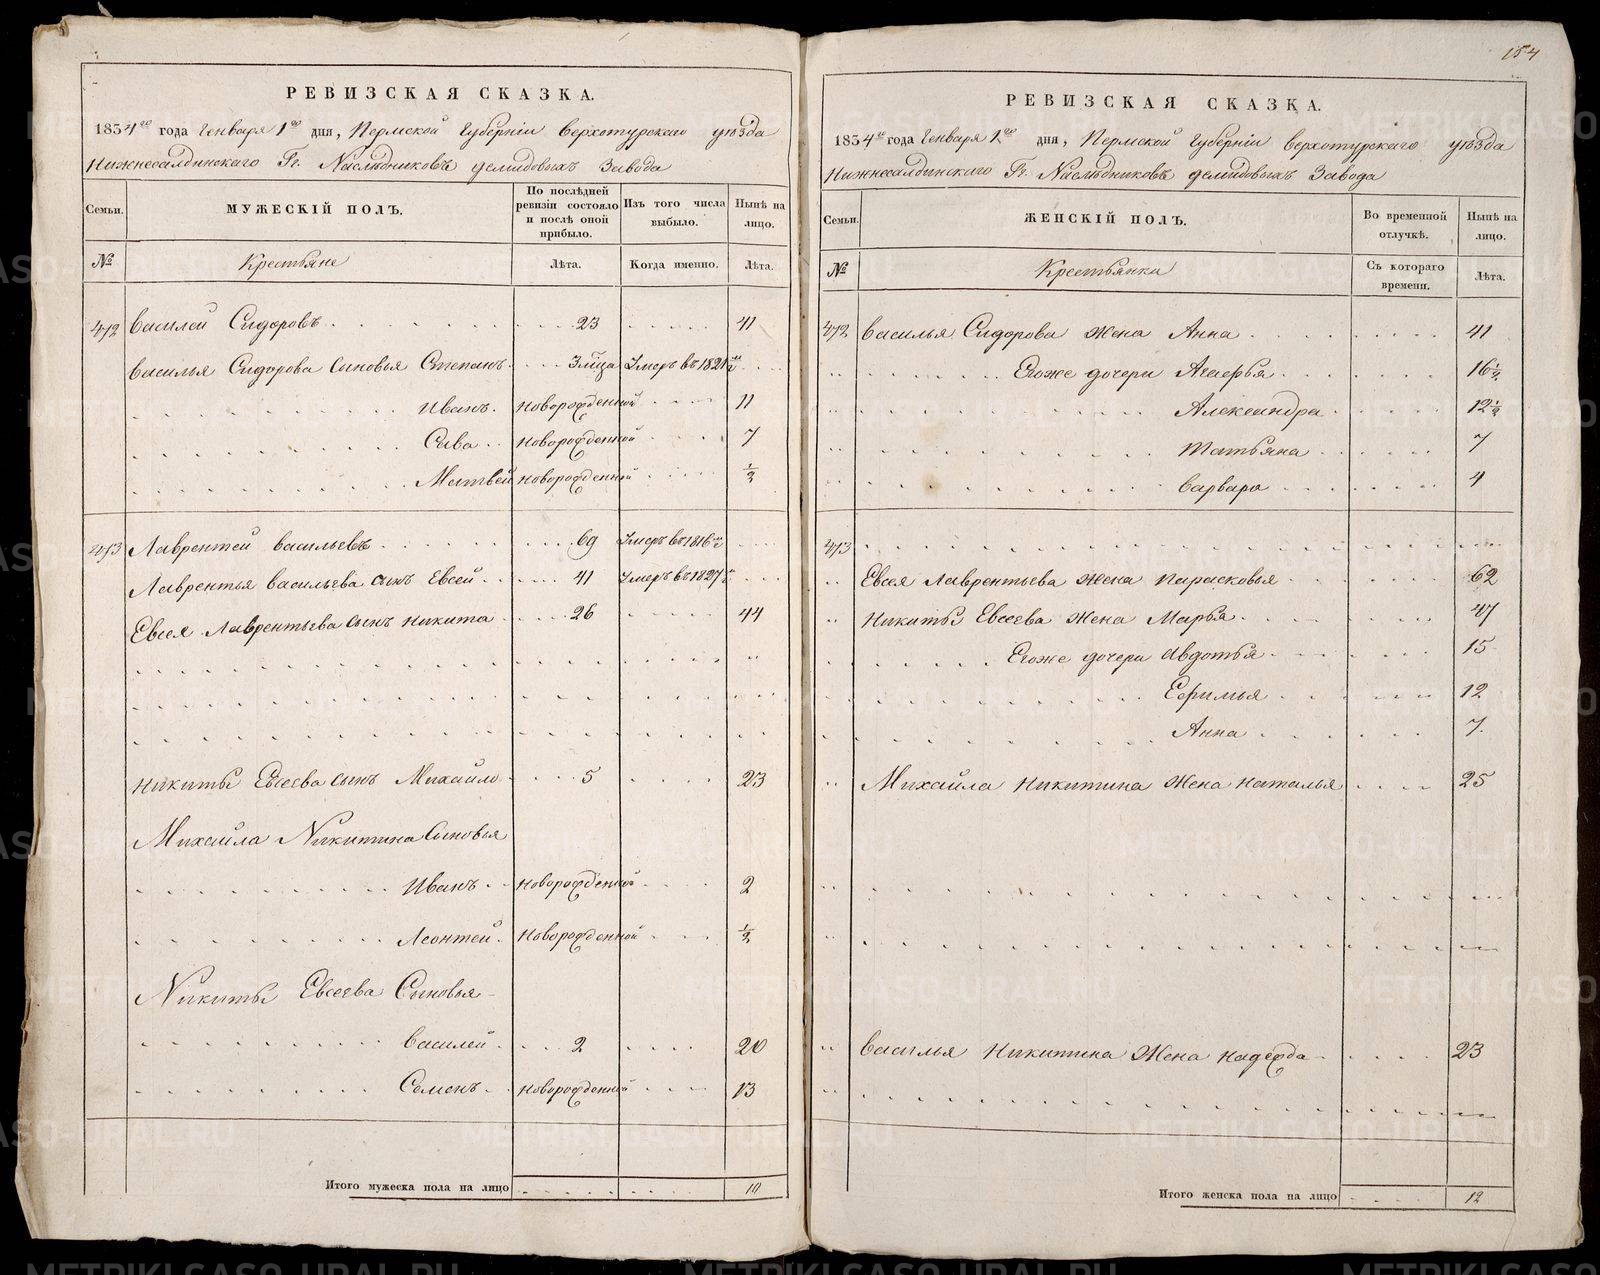 РЕВИЗСКАЯ СКАЗКА.
1834го года Генваря 1го дня, Пермской Губернiи Верхотурскаго уѣзда
Нижнесалдинскаго Гг. Наслѣдниковъ Демидовыхъ Завода
Семьи.
МУЖЕСКІЙ ПОЛЪ.
По послѣдней ревизіи состояло и послѣ оной прибыло.
Изъ того числа выбыло.
Нынѣ на лицо.
№
Крестьяне
Лѣта.
Когда именно.
Лѣта.
472 Василей Сидоровъ 23 41
Василья Сидорова Сыновья Степанъ Умеръ въ 1821
Иванъ Новорожденной 11
Сава Новорожденной 7
Матвей Новорожденной ½
473 Лаврентей Васильевъ 69 Умеръ въ 1816
Лаврентья Васильева Сынъ Евсей 41 Умеръ въ 1827
Евсея Лаврентьева Сынъ Никита 26 44
Никиты Евсеева Сынъ Михайло 5 23
Михайла Никитина Сыновья
Иванъ Новорожденной 2
Леонтей Новорожденной ½
Никиты Евсеева Сыновья
Василей 2 20
Семенъ Новорожденной 13
Итого мужеска пола на лицо 10
154
РЕВИЗСКАЯ СКАЗКА.
1834го года Генваря 1го дня, Пермской Губернiи Верхотурскаго уѣзда
Нижнесалдинскаго Гг. Наслѣдниковъ Демидовыхъ Завода
Семьи.
ЖЕНСКІЙ ПОЛЪ.
Во временной отлучкѣ.
Нынѣ на лицо.
№
Крестьянки
Съ котораго времени.
Лѣта.
472 Василья Сидорова Жена Анна 41
Егоже дочери 16½
Александра 12½
Татьяна 7
Варвара 4
473
Евсея Лаврентьева Жена Парасковья 62
Никиты Евсеева Жена Марья 47
Егоже дочери Авдотья 15
Ефимья 12
Анна 7
Михайла Никитина Жена Наталья 25
Василья Никитина Жена Надежда 23
Итого женска пола на лицо 12
METRIKI.GASO-URAL.RU